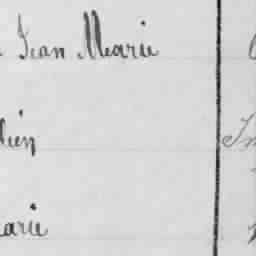 Jean Marie
lien
arie